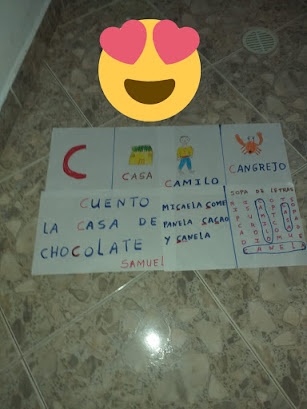 C
CASA
CAMILO
CANGREJO
CUENTO
LA CASA DE
CHOCOLATE
SAMUEL
MICAELA COME
PANELA CACAO
Y CANELA
SOPA DE LETRAS
CANELA